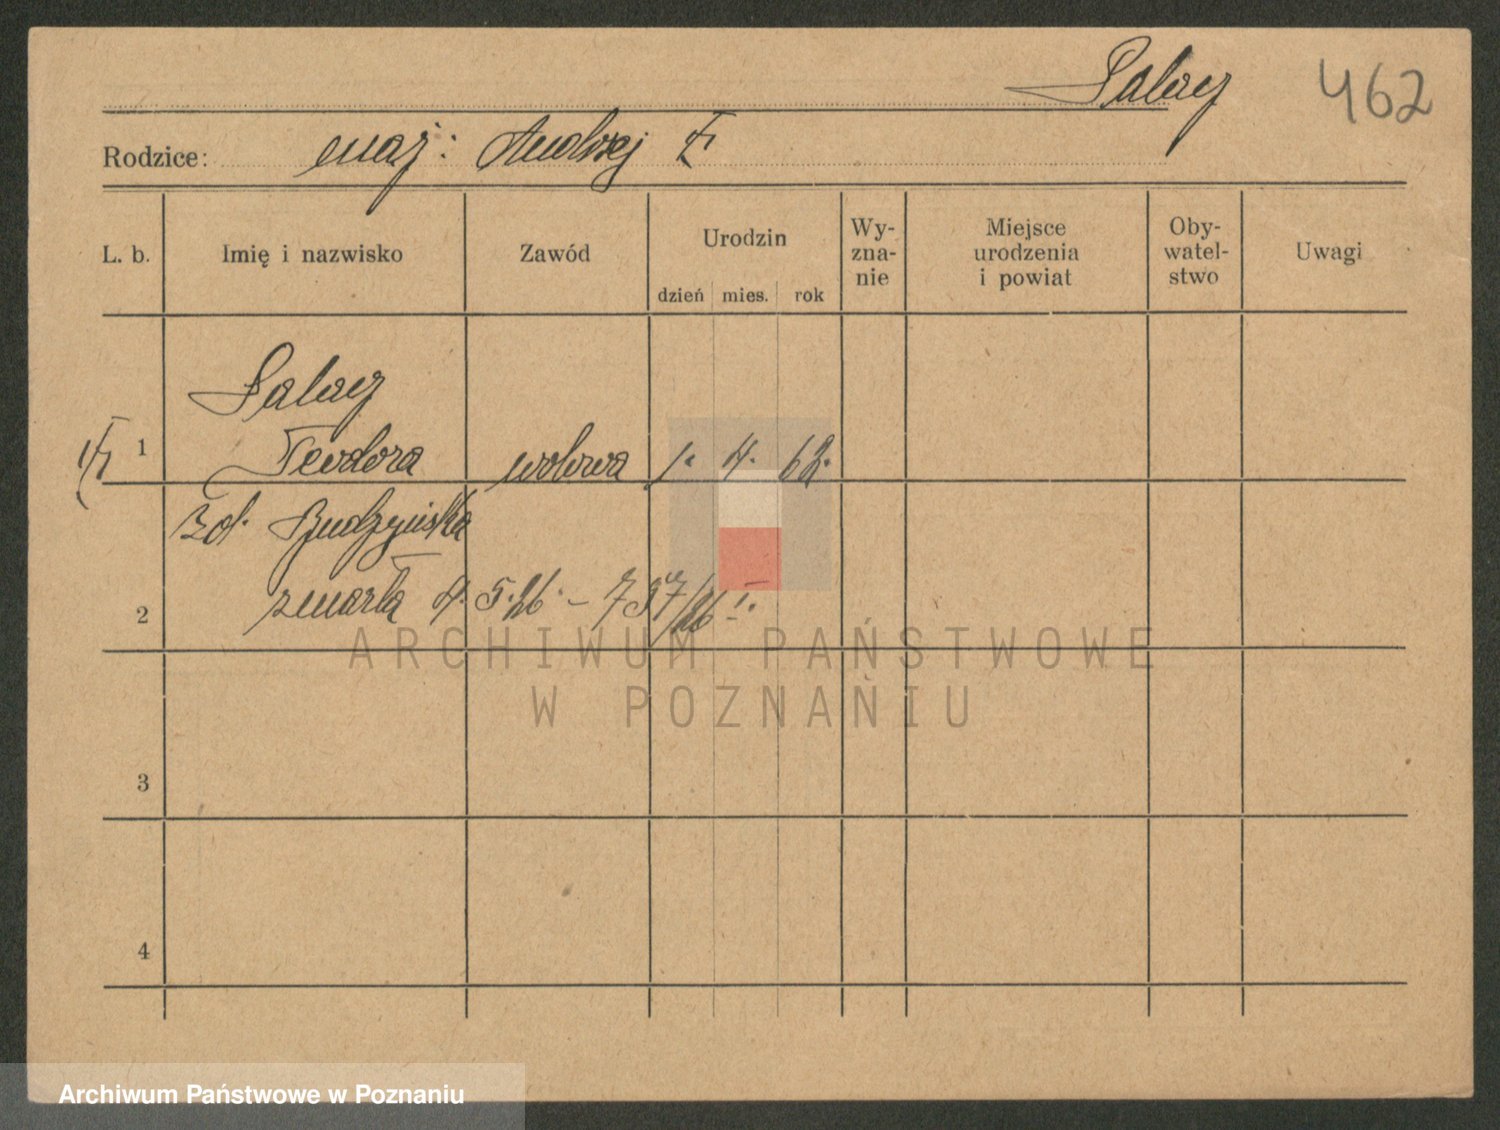 Palacz
462
Rodzice: mąż: Andrzej
L. b. Imię i nazwisko Zawód Urodzin dzień mies. rok Wy-zna-nie Miejsce urodzenia i powiat Oby-watel-stwo Uwagi
Palacz
1 Teodora wdowa 1. 4. 62.
zd. Budzyńska
2 zmarła 4. 5. 26. –
3
4
ARCHIWUM PAŃSTWOWE
W POZNANIU
Archiwum Państwowe w Poznaniu